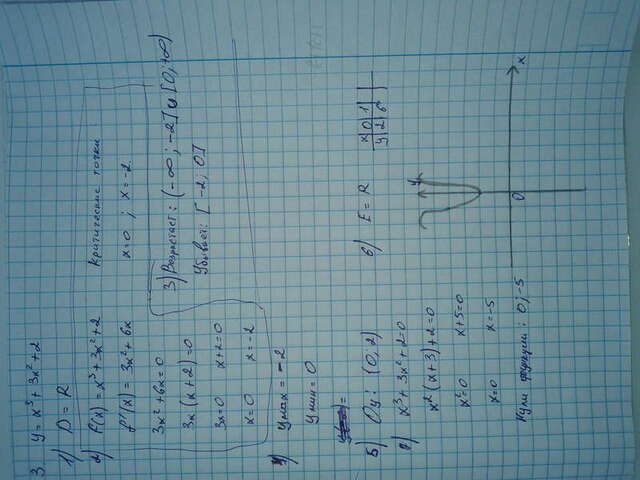 3. y = x³ + 3x² + 2
1) D = R
2) f(x) = x³ + 3x² + 2
f'(x) = 3x² + 6x
3x² + 6x = 0
3x (x + 2) = 0
3x = 0 x + 2 = 0
x = 0 x = -2
Критические точки
x = 0 ; x = -2
3) Возрастает: (-∞; -2] ∪ [0; +∞)
Убывает: [-2; 0]
4) y max = -2
y мин = 0
5) Oy: (0, 2)
x³ + 3x² + 2 = 0
x² (x + 3) + 2 = 0
x² = 0 x + 5 = 0
x = 0 x = -5
Нули функции: 0; -5
6) E = R
x 0 1
y 2 6
y
0
x